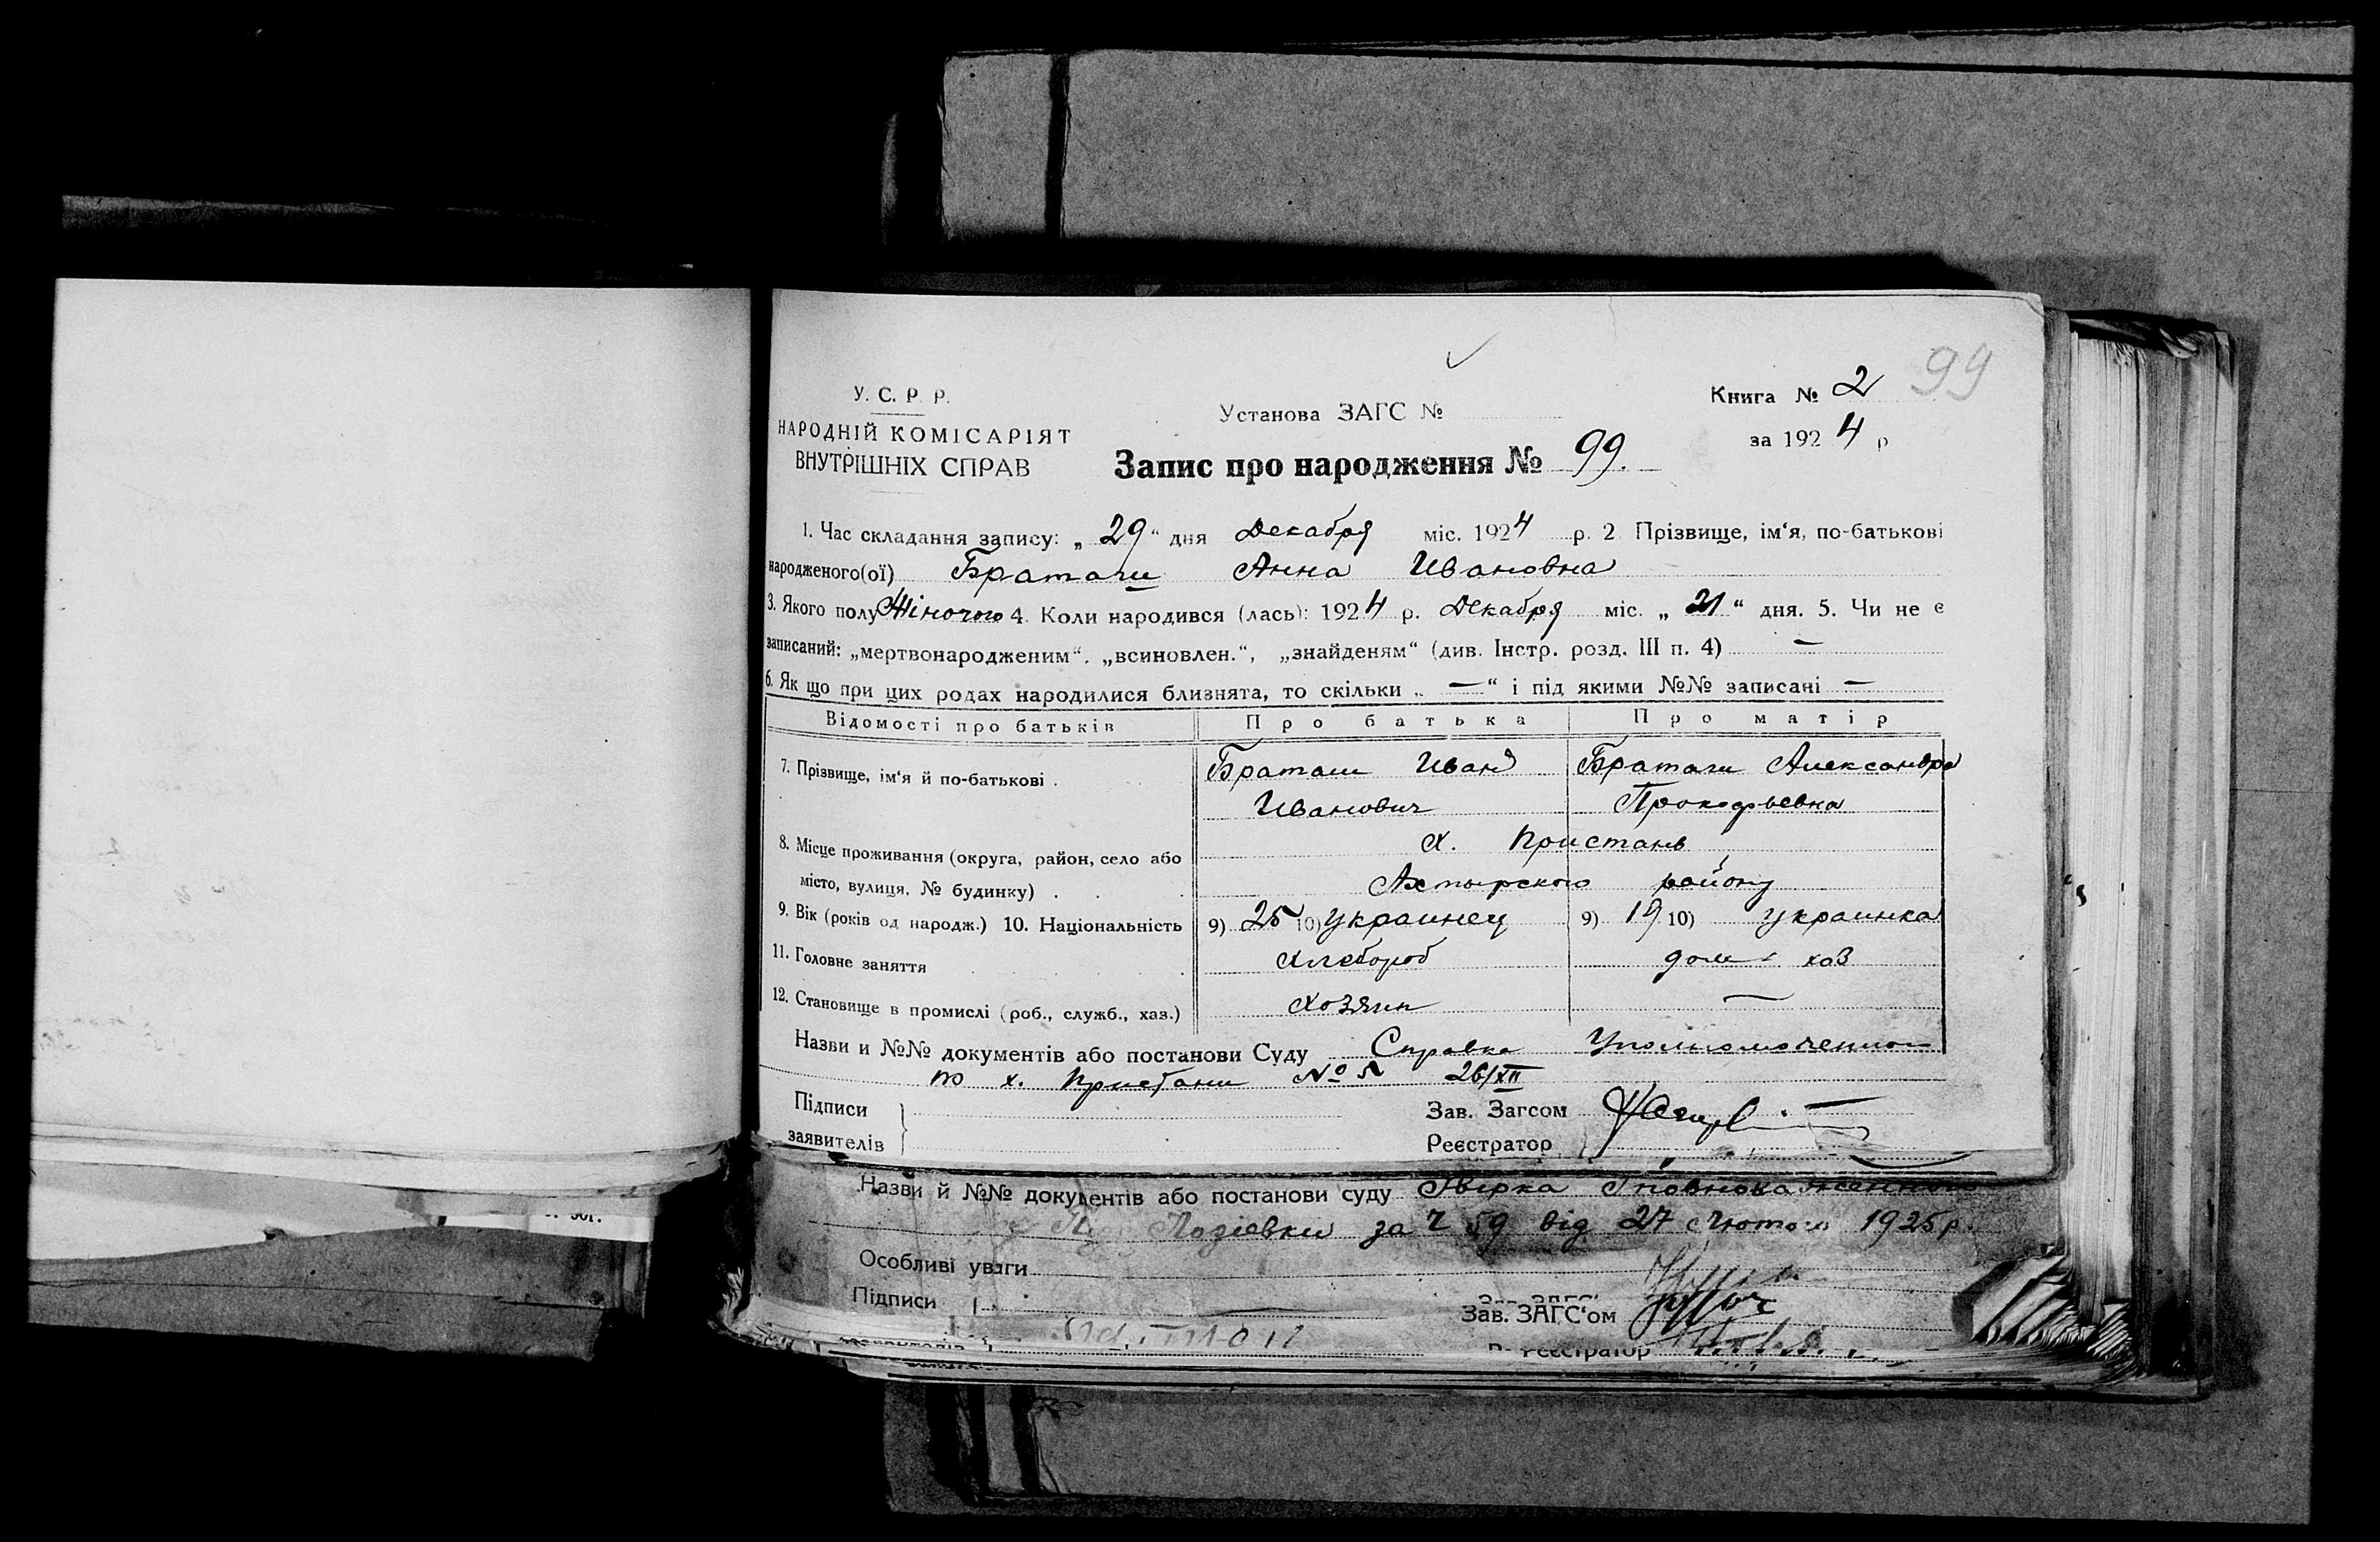 99
У. С. Р. Р.
НАРОДНІЙ КОМІСАРІЯТ
ВНУТРІШНІХ СПРАВ
Установа ЗАГС №
Книга № 2
за 1924 р
Запис про народження № 99.
1. Час складання запису: „29“ дня Декабря міс. 1924 р. 2 Прізвище, ім‘я, по-батькові
народженого(ої) Браташ Анна Ивановна
3. Якого полу Жіночого 4. Коли народився (лась): 1924 р. Декабря міс. „21“ дня. 5. Чи не є
записаний: „мертвонародженим“, „всиновлен.“, „знайденям“ (див. Інстр. розд. III п. 4) —
6. Як що при цих родах народилися близнята, то скільки „ — “ і під якими №№ записані —
Відомості про батьків Про батька Про матір
7. Прізвище, ім‘я й по-батькові . Браташ Иван Браташ Александра
Иванович Прокофьевна
8. Місце проживання (округа, район, село або х. Пристань
місто, вулиця, № будинку) . Ахтырского району
9. Вік (років од народж.) 10. Національність 9) 25 10) украинец 9) 19 10) украинка
11. Головне заняття хлебороб дом хоз
12. Становище в промислі (роб., служб., хаз.) хозяин —
Назви и №№ документів або постанови Суду Справка Уполномоченного
по х. Пристани № 26/XII
Підписи
заявителів
Зав. Загсом
Реєстратор
Назви й №№ документів або постанови суду
Лозіевки за 59 від 27 Лютого 1925 р.
Особливі уваги
Підписи
Зав. ЗАГС‘ом
Реєстратор